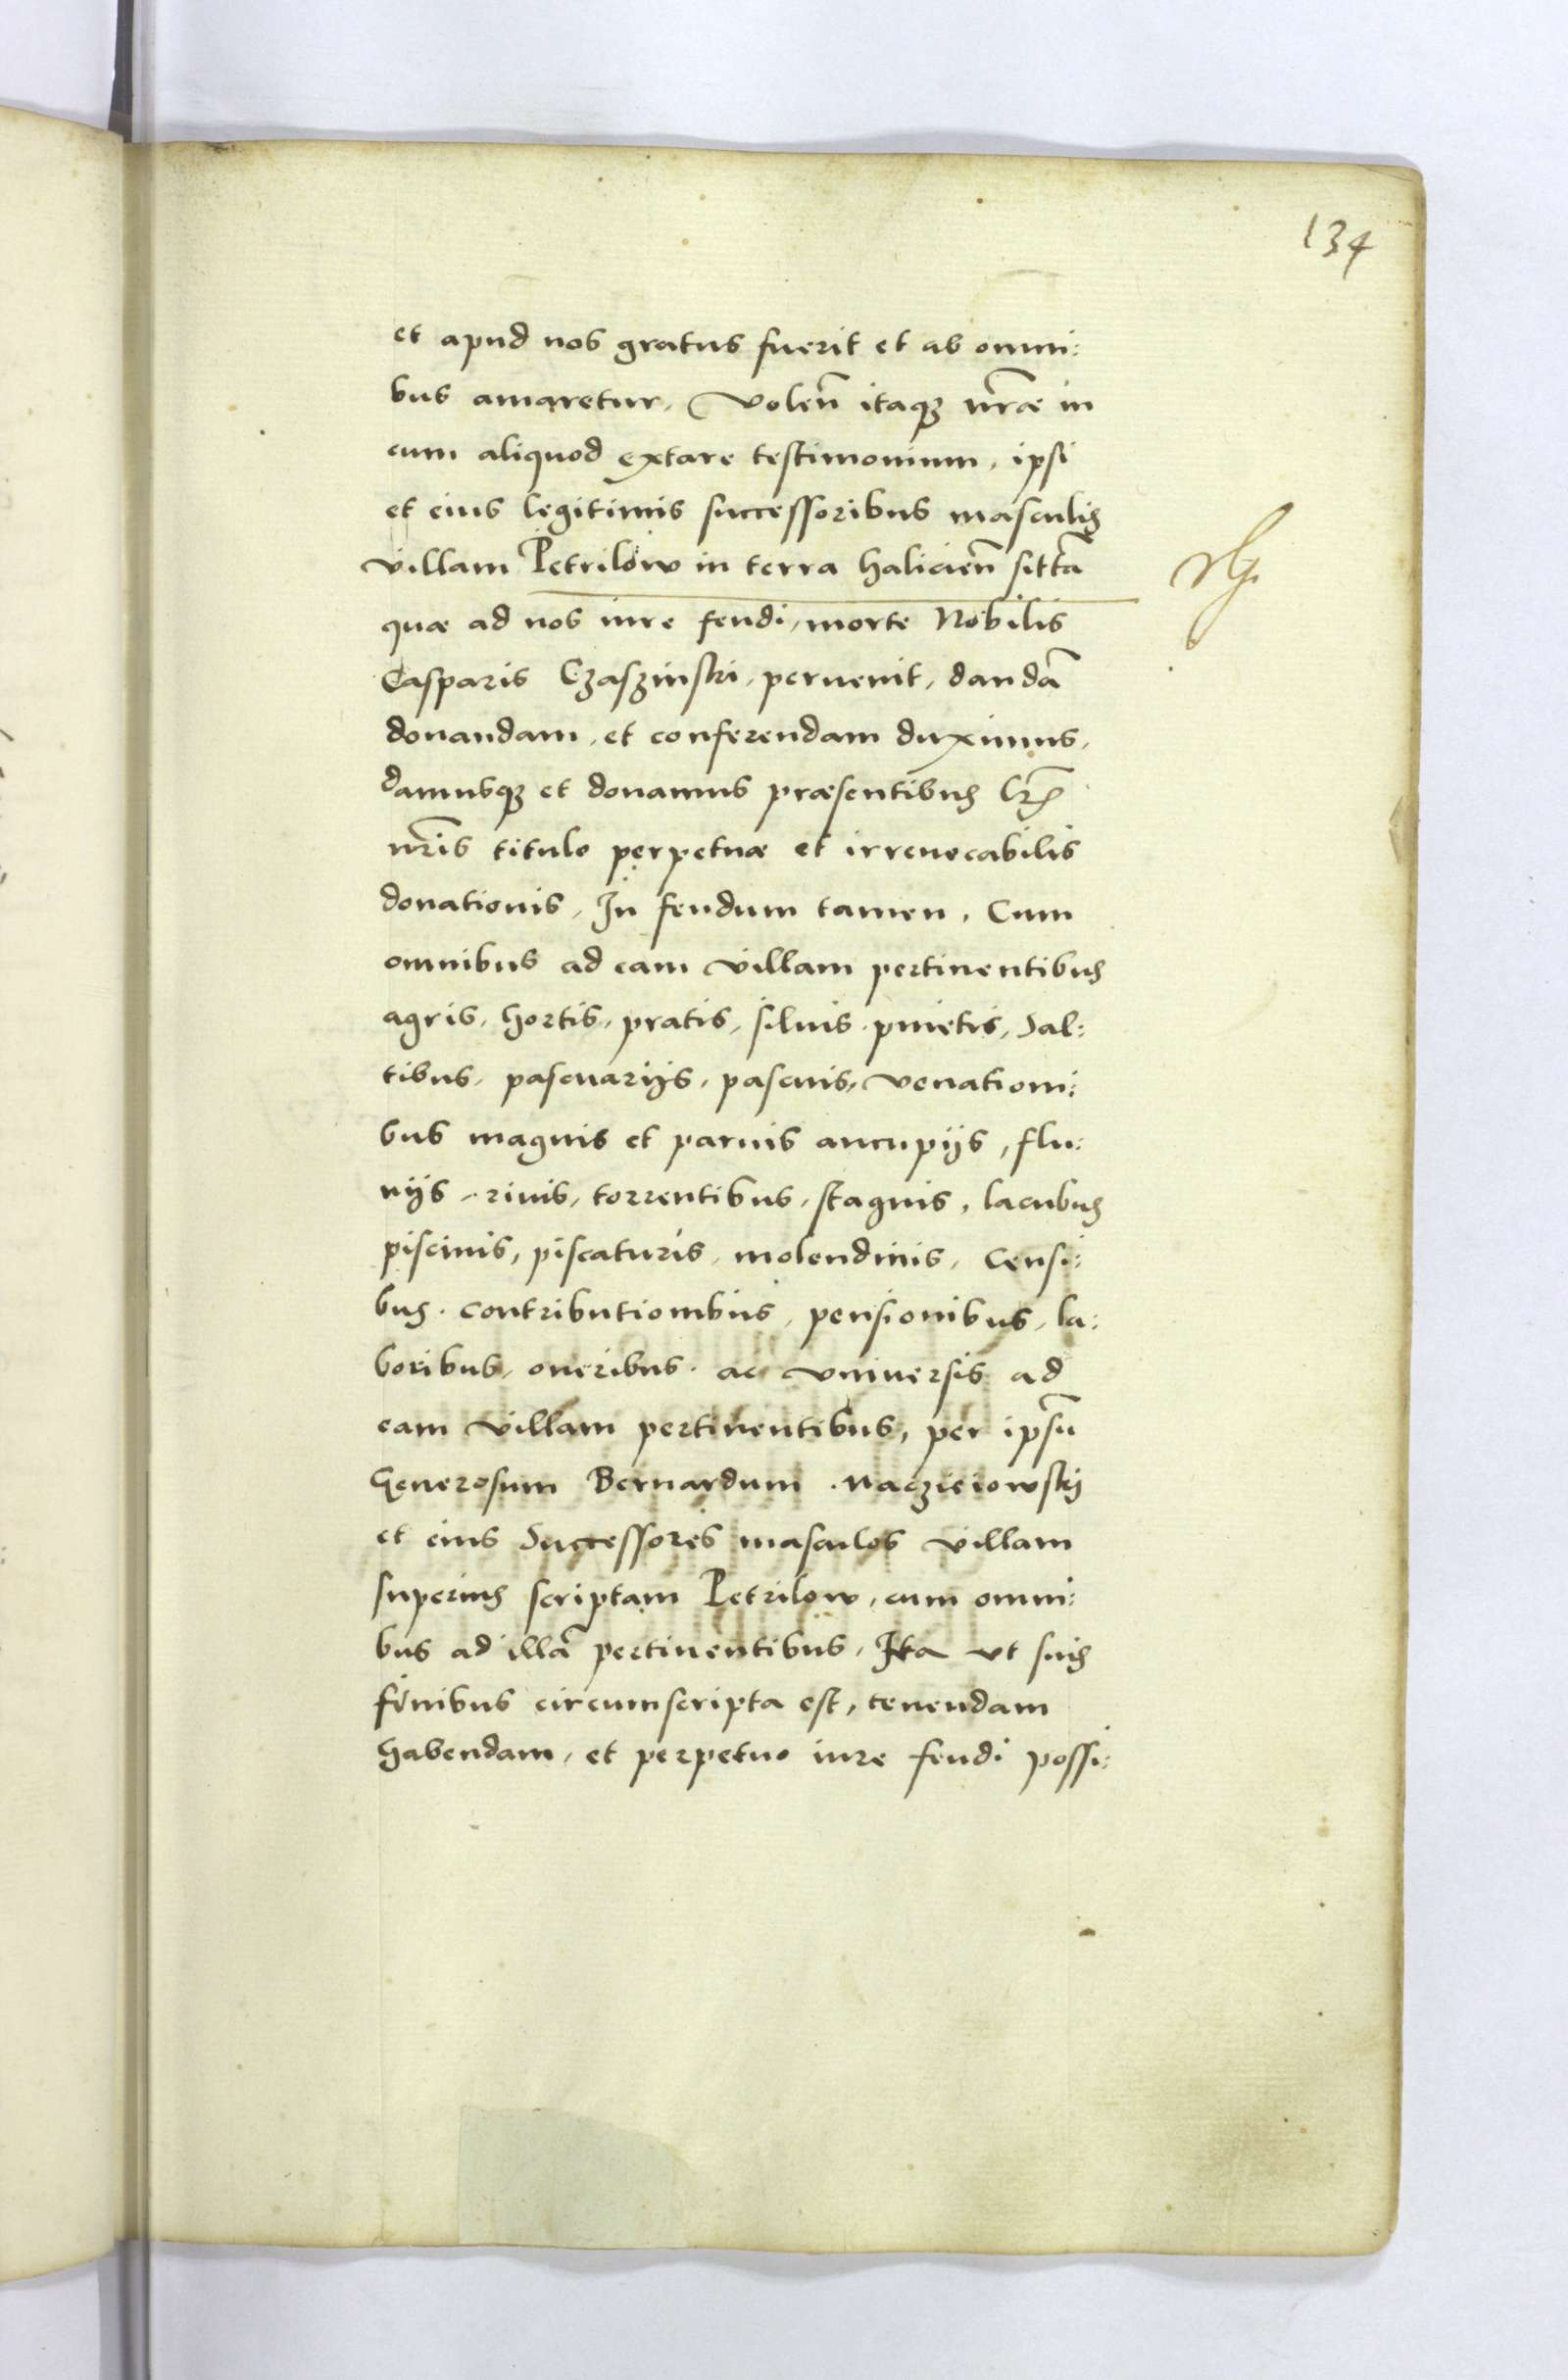 134
et apud nos gratus fuerit et ab omni:
bus amaretur, Volen̄ itaqꝫ nr̄æ in
eum aliquod extare testimonium, ipsi
et eius legitimis successoribus masculis
villam Petrilow in terra halicien̄ sittā
quæ ad nos iure feudi, morte Nobilis
Casparis Czaszinski, peruenit, dandā
donandam, et conferendam duximus,
damusqꝫ et donamus præsentibus lr̄is
nr̄is titulo perpetuæ et irreuocabilis
donationis, In feudum tamen, Cum
omnibus ad eam villam pertinentibus
agris, hortis, pratis, siluis, pinetis, Sal:
tibus, pascuarijs, pascuis, venationi:
bus magnis et paruis aucupijs, flu:
uijs, riuis, torrentibus, stagnis, lacubus
piscinis, piscaturis, molendinis, Censi:
bus, contributionibus, pensionibus, la:
boribus, oneribus, ac vniuersis ad
eam villam pertinentibus, per ipsū
Generosum Bernardum Maczieiowskj
et eius Successores masculos villam
superius scriptam Petrilow, cum omni:
bus ad illā pertinentibus, Ita vt suis
finibus circumscripta est, tenendam
habendam, et perpetuo iure feudi possi: